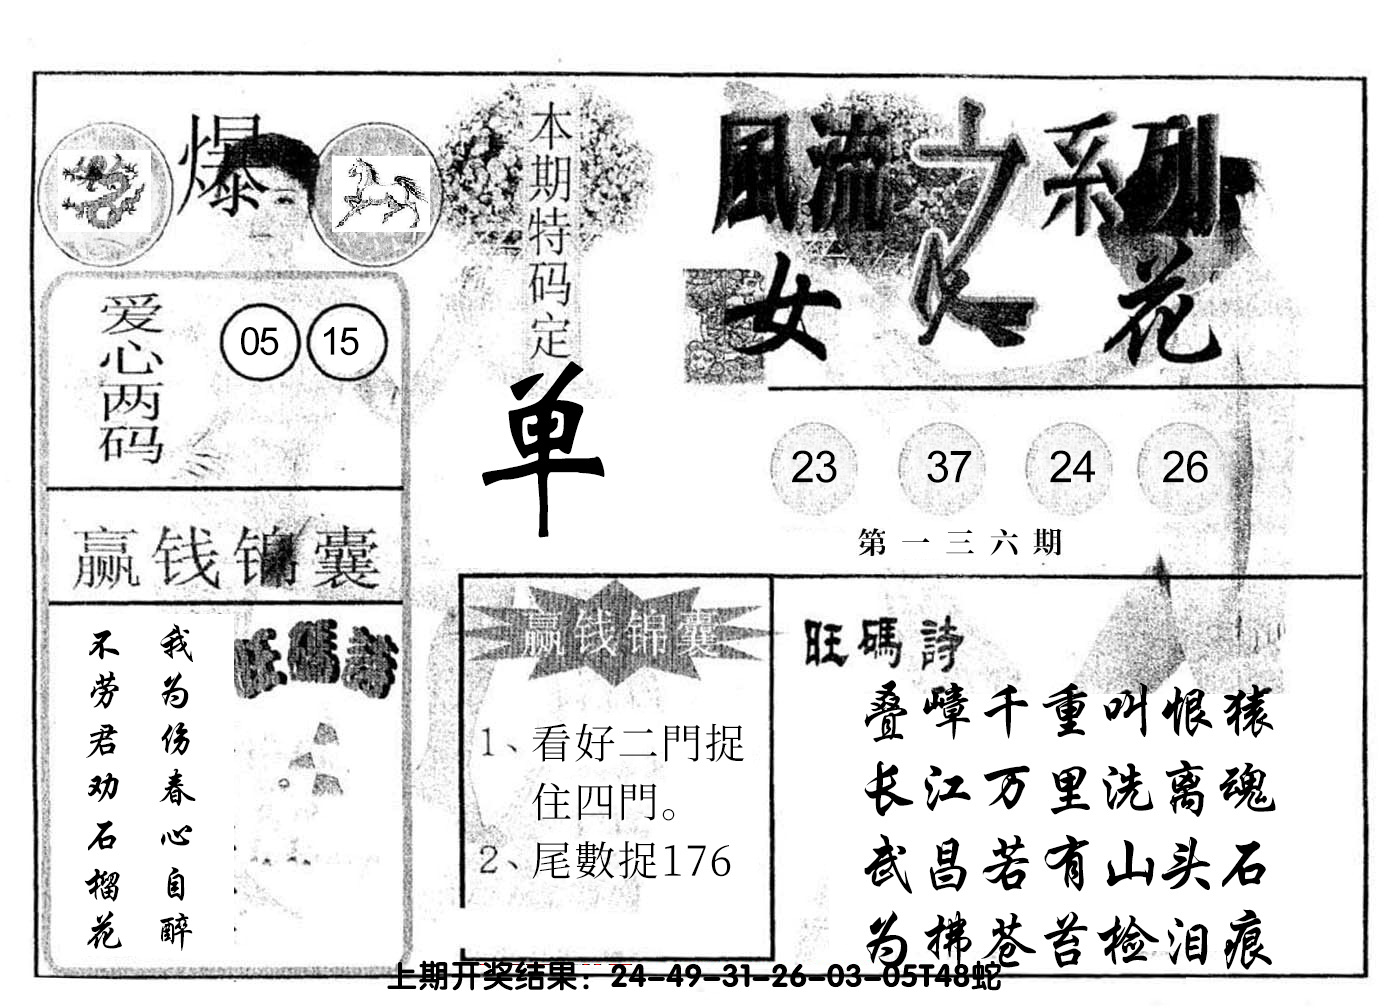 爆
本期特码定
单
風流之系列
女人花
爱心两码
05 15
23 37 24 26
第一三六期
赢钱锦囊
我为伤春心自醉
不劳君劝石榴花
旺碼詩
赢钱锦囊
1、看好二門捉
住四門。
2、尾數捉176
旺碼詩
叠嶂千重叫恨猿
长江万里洗离魂
武昌若有山头石
为拂苍苔检泪痕
上期开奖结果：24-49-31-26-03-05T48蛇